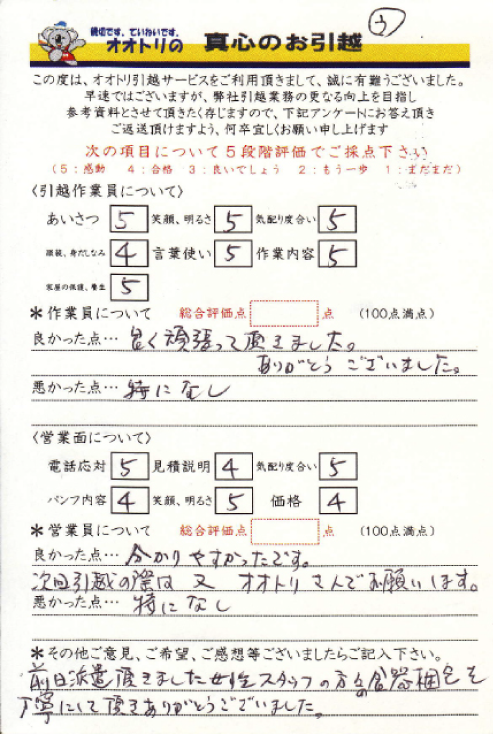 ウ
親切です。ていねいです。
オオトリの 真心のお引越
この度は、オオトリ引越サービスをご利用頂きまして、誠に有難うございました。
早速ではございますが、弊社引越業務の更なる向上を目指し
参考資料とさせて頂きたく存じますので、下記アンケートにお答え頂き
ご返送頂けますよう、何卒宜しくお願い申し上げます
次の項目について5段階評価でご採点下さい
(5:感動 4:合格 3:良いでしょう 2:もう一歩 1:まだまだ)
〈引越作業員について〉
あいさつ 5 笑顔、明るさ 5 気配り度合い 5
服装、身だしなみ 4 言葉使い 5 作業内容 5
家屋の保護、養生 5
*作業員について 総合評価点 点 (100点満点)
良かった点… 良く頑張って頂きました。
ありがとうございました。
悪かった点… 特になし
〈営業面について〉
電話応対 5 見積説明 4 気配り度合い 5
パンフ内容 4 笑顔、明るさ 5 価格 4
*営業員について 総合評価点 点 (100点満点)
良かった点… 分かりやすかったです。
次回引越の際は 又 オオトリさんでお願いします。
悪かった点… 特になし
*その他ご意見、ご希望、ご感想等ございましたらご記入下さい。
前日派遣頂きました女性スタッフの方の食器梱包を
丁寧にして頂きありがとうございました。